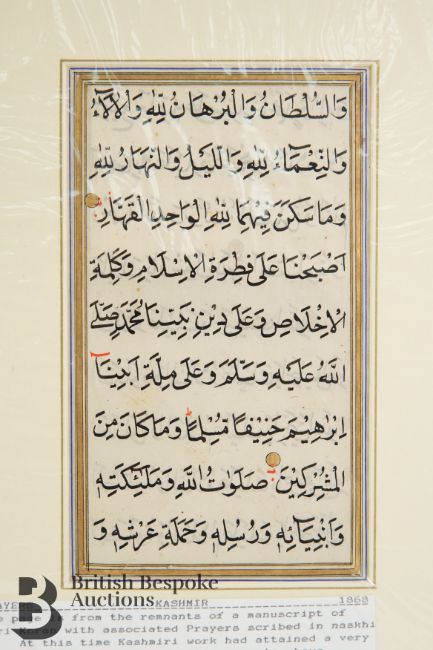 وَالسُّلْطَانُ وَالْبُرْهَانُ لِلّٰهِ وَالْاٰلَاۤءُ
وَالنِّعْمَاۤءُ لِلّٰهِ وَاللَّيْلُ وَالنَّهَارُ لِلّٰهِ
وَمَا سَكَنَ فِيْهِمَا لِلّٰهِ الْوَاحِدِ الْقَهَّارِ
اَصْبَحْنَا عَلٰى فِطْرَةِ الْاِسْلَامِ وَكَلِمَةِ
الْاِخْلَاصِ وَعَلٰى دِيْنِ نَبِيِّنَا مُحَمَّدٍ صَلَّى
اللّٰهُ عَلَيْهِ وَسَلَّمَ وَعَلٰى مِلَّةِ اَبِيْنَاۤ
اِبْرٰهِيْمَ حَنِيْفًا مُّسْلِمًا وَمَا كَانَ مِنَ
الْمُشْرِكِيْنَ صَلَوٰتُ اللّٰهِ وَمَلٰۤئِكَتِهٖ
وَاَنْبِيَاۤئِهٖ وَرُسُلِهٖ وَحَمَلَةِ عَرْشِهٖ وَ
British Bespoke
Auctions
KASHMIR 1860
is from the remnants of a manuscript of
Koran with associated Prayers scribed in naskhi
At this time Kashmiri work had attained a very